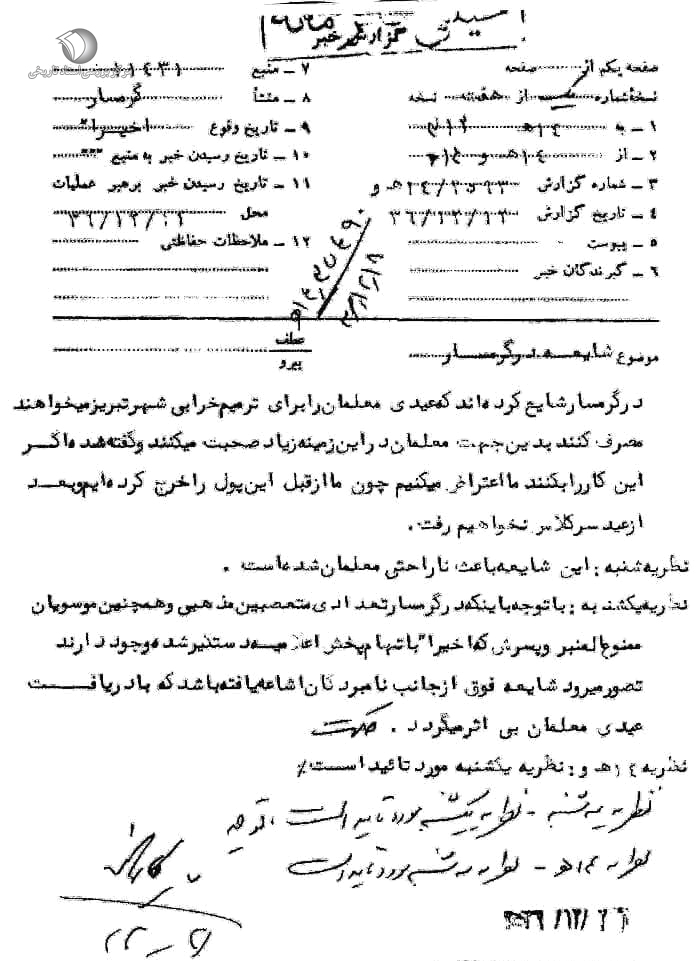 گزارش خبر
مرکز بررسی اسناد تاریخی
صفحه یکم از صفحه
نسخه شماره از هفت نسخه
۱ ـ به
۲ ـ از ۱۴ هـ و
۳ ـ شماره گزارش
۴ ـ تاریخ گزارش ۳۶/۱۲/۱۳
۵ ـ پیوست
۶ ـ گیرندگان خبر
۷ ـ منبع ۱۱۴۳۱
۸ ـ منشأ گرمسار
۹ ـ تاریخ وقوع اخیرا"
۱۰ ـ تاریخ رسیدن خبر به منبع
۱۱ ـ تاریخ رسیدن خبر برهبر عملیات
محل
۱۲ ـ ملاحظات حفاظتی
موضوع شایعه در گرمسار
عطف
پیرو
در گرمسار شایع کرده اند که عیدی معلمان را برای ترمیم خرابی شهر تبریز میخواهند
مصرف کنند بدین جهت معلمان در این زمینه زیاد صحبت میکنند و گفته شده اگر
این کار را بکنند ما اعتراض میکنیم چون ما از قبل این پول را خرج کرده ایم و بعد
از عید سر کلاس نخواهیم رفت.
نظریه شنبه : این شایعه باعث ناراحتی معلمان شده است .
نظریه یکشنبه : با توجه باینکه در گرمسار تعدادی متعصبین مذهبی و همچنین موسویان
ممنوع المنبر و پسرش که اخیرا" باتهام پخش اعلامیه دستگیر شده وجود دارند
تصور میرود شایعه فوق از جانب نامبردگان اشاعه یافته باشد که با دریافت
عیدی معلمان بی اثر میگردد . حکمت
نظریه ۱۴ هـ و : نظریه یکشنبه مورد تائید است٪
نظریه سه شنبه - نظریه یکشنبه مورد تایید است.
نظریه ۱۴هـ - نظریه سه شنبه مورد تایید است